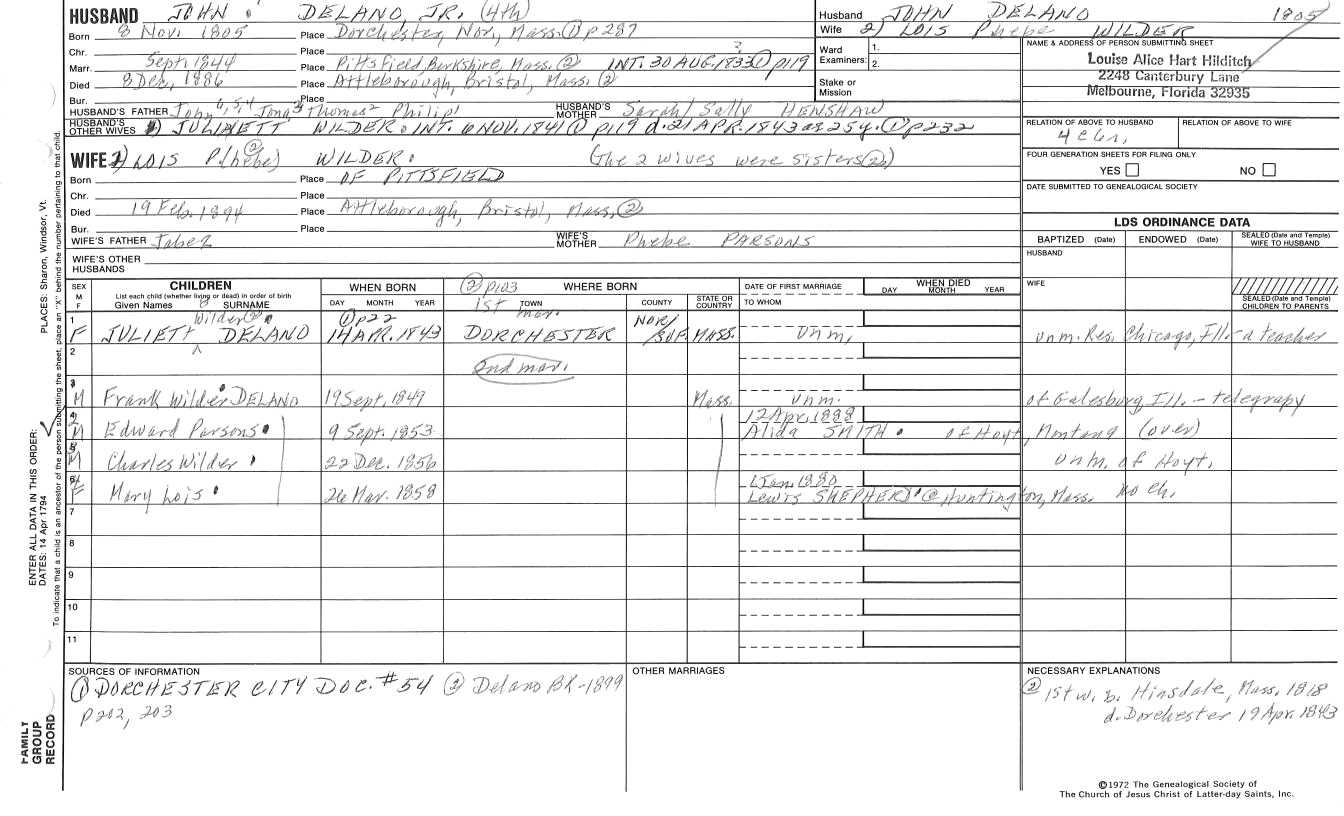 HUSBAND JOHN DELANO, JR. (4th)
Born 8 Nov. 1805 Place Dorchester, Nor, Mass. ① p287
Chr. Place
Marr. Sept. 1844 Place Pittsfield, Berkshire, Mass. ② INT. 30 AUG. 1833 ? ① p119
Died 8 Dec. 1886 Place Attleborough, Bristol, Mass. ②
Bur. Place
HUSBAND'S FATHER John 6,5,4 Jona 3 Thomas 2 Philip 1 HUSBAND'S MOTHER Sarah/Sally HENSHAW
HUSBAND'S OTHER WIVES 1) JULINETT WILDER. INT. 6 NOV. 1841 ① p119 d. 21 APR. 1843 ae 25y. ① p232
WIFE 2) LOIS P(hebe) ② WILDER. (The 2 wives were sisters ②.)
Born Place OF PITTSFIELD
Chr. Place
Died 19 Feb. 1894 Place Attleborough, Bristol, Mass. ②
Bur. Place
WIFE'S FATHER Jabez WIFE'S MOTHER Phebe PARSONS
WIFE'S OTHER HUSBANDS
Husband JOHN DELANO 1805
Wife 2) LOIS Phebe WILDER
Ward 1.
Examiners: 2.
Stake or Mission
NAME & ADDRESS OF PERSON SUBMITTING SHEET
Louise Alice Hart Hilditch
2248 Canterbury Lane
Melbourne, Florida 32935
RELATION OF ABOVE TO HUSBAND RELATION OF ABOVE TO WIFE
FOUR GENERATION SHEETS FOR FILING ONLY
YES NO
DATE SUBMITTED TO GENEALOGICAL SOCIETY
LDS ORDINANCE DATA
BAPTIZED (Date) ENDOWED (Date) SEALED (Date and Temple) WIFE TO HUSBAND
HUSBAND
WIFE
SEALED (Date and Temple) CHILDREN TO PARENTS
SEX M F
CHILDREN
List each child (whether living or dead) in order of birth
Given Names SURNAME
WHEN BORN
DAY MONTH YEAR
② p203 WHERE BORN
1st mar. TOWN COUNTY STATE OR COUNTRY
DATE OF FIRST MARRIAGE
TO WHOM
WHEN DIED
DAY MONTH YEAR
1 F JULIETT Wilder ② DELANO ① p22 14 APR. 1843 DORCHESTER NOR/SUF. MASS. unm. unm. Res. Chicago, Ill. - a teacher
2 2nd mar.
3 M Frank Wilder DELANO 19 Sept. 1849 Mass. unm. of Galesburg Ill. - telegrapy
4 M Edward Parsons 9 Sept. 1853 12 Apr. 1888 Alida SMITH. of Hoyt, Montana (over)
5 M Charles Wilder 22 Dec. 1856 unm. of Hoyt.
6 F Mary Lois 26 Mar. 1858 1 Jan. 1880 Lewis SHEPHERD @ Huntington, Mass. no ch.
7
8
9
10
11
SOURCES OF INFORMATION
① DORCHESTER CITY DOC. #54 ② Delano BK-1899
p202, 203
OTHER MARRIAGES
NECESSARY EXPLANATIONS
② 1st w. b. Hinsdale, Mass. 1818
d. Dorchester 19 Apr. 1843
©1972 The Genealogical Society of
The Church of Jesus Christ of Latter-day Saints, Inc.
PLACES: Sharon, Windsor, Vt.
ENTER ALL DATA IN THIS ORDER:
DATES: 14 Apr 1794
To indicate that a child is an ancestor of the person submitting the sheet, place an "X" behind the number pertaining to that child.
FAMILY GROUP RECORD